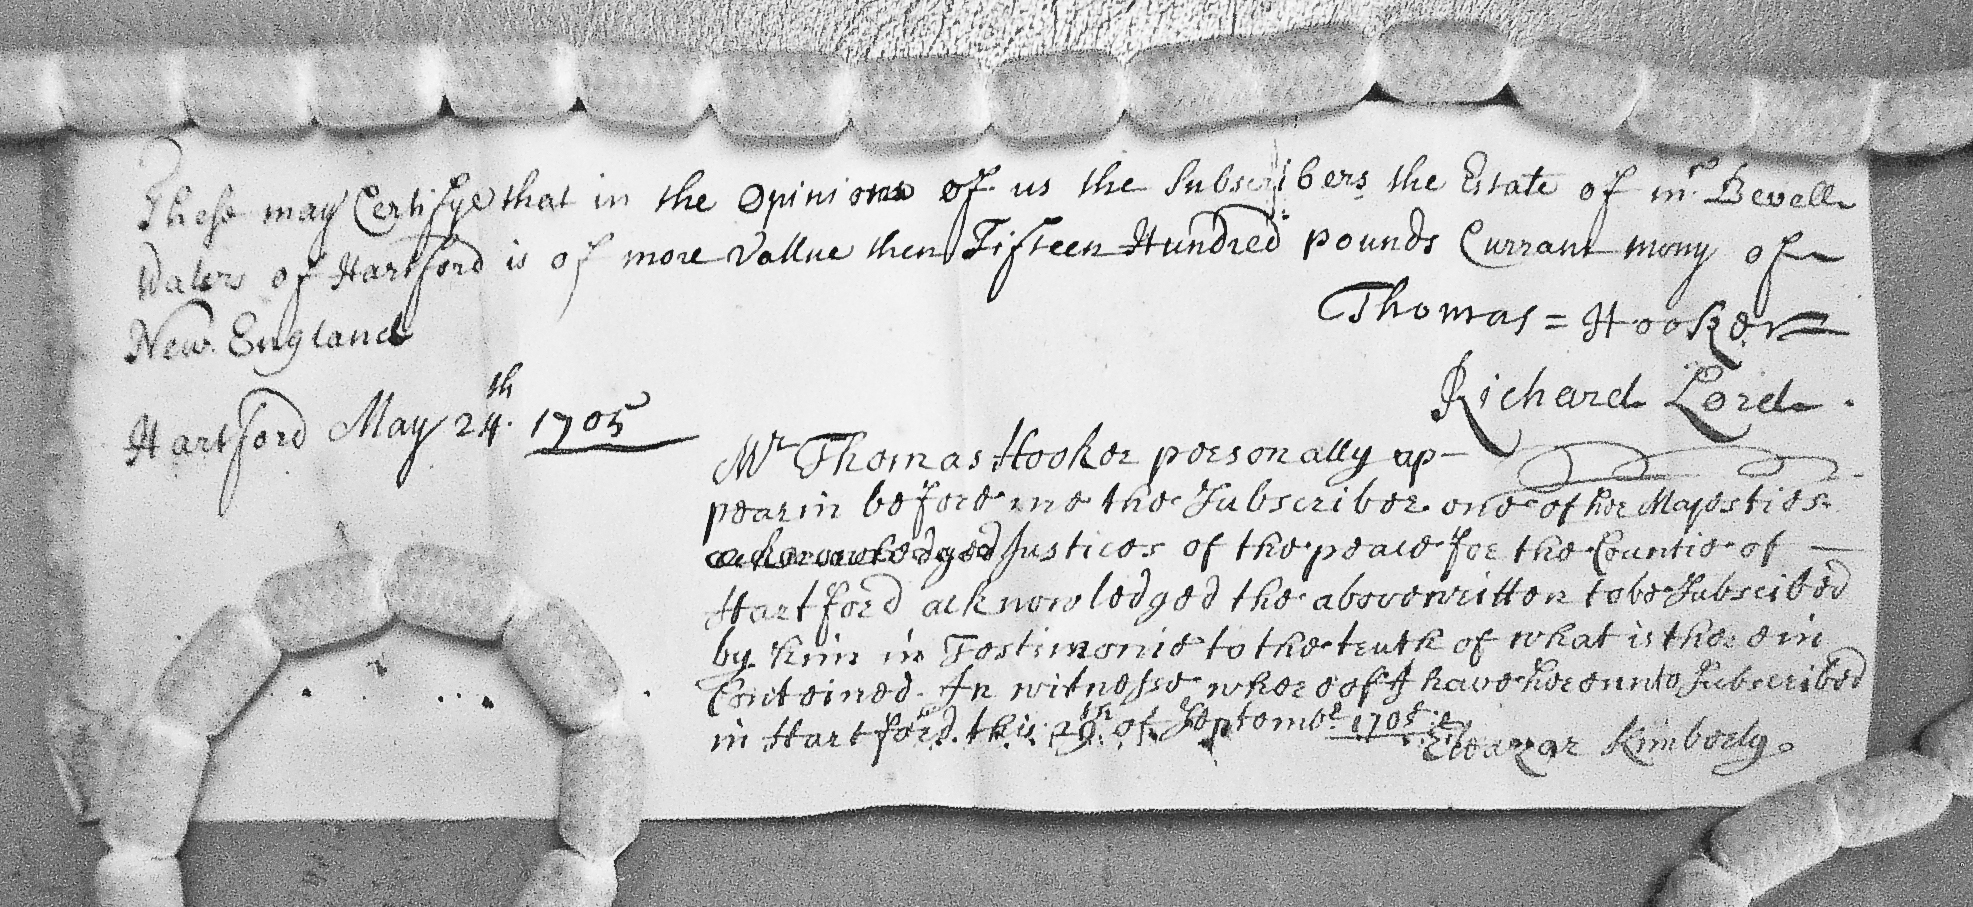 These may Certifye that in the Opinion of us the Subscribers the Estate of mr. Bevell
Waters of Hartford is of more Vallue then Fifteen Hundred pounds Currant mony of
New England
Thomas = Hooker
Richard Lord.
Hartford May 24th. 1705
Mr Thomas Hooker personally ap-
pearin before me the Subscriber one of her Majesties
acknowledged Justices of the peace for the Countie of
Hartford acknowledged the abovewritten to be Subscibed
by him in Testimonie to the truth of what is therein
Conteined. In witnesse whereoff I have hereunto Subscribed
in Hartford this 29th of Septembr 1705
Eleazar Kimberly.